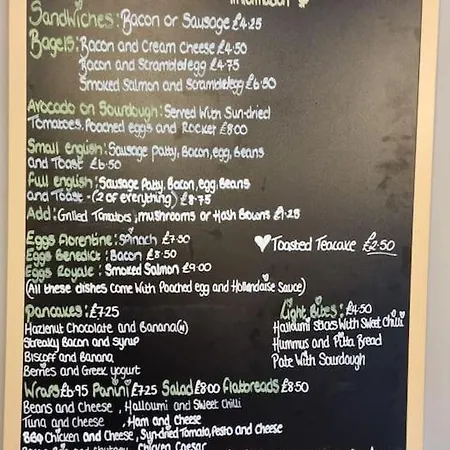 Information
Sandwiches: Bacon or Sausage £4.25
Bagels: Bacon and Cream Cheese £4.50
Bacon and Scrambled egg £4.75
Smoked Salmon and Scrambled egg £6.50
Avocado on Sourdough: Served With Sun-dried
Tomatoes, Poached eggs and Rocket £8.00
Small english: Sausage patty, Bacon, egg, Beans
and Toast £6.50
Full english: Sausage Patty, Bacon, egg, Beans
and Toast - (2 of everything) £8.75
Add: Grilled Tomatoes, mushrooms or Hash Browns £1.25
Eggs florentine: Spinach £7.50
♥ Toasted Teacake £2.50
Eggs Benedict: Bacon £8.50
Eggs Royale: Smoked Salmon £9.00
(All these dishes come With Poached egg and Hollandaise Sauce)
Pancakes: £7.25
Hazlenut Chocolate and Banana (N)
Streaky Bacon and syrup
Biscoff and Banana
Berries and Greek yogurt
Light Bites: £4.50
Halloumi sticks With Sweet Chilli
Hummus and Pitta Bread
Pate With Sourdough
Wraps £6.95 Panini £7.25 Salad £8.00 flatbreads £8.50
Beans and Cheese, Halloumi and Sweet Chilli
Tuna and Cheese, Ham and Cheese
BBQ Chicken and Cheese, Sun-dried Tomato, Pesto and cheese
Chicken Caesar